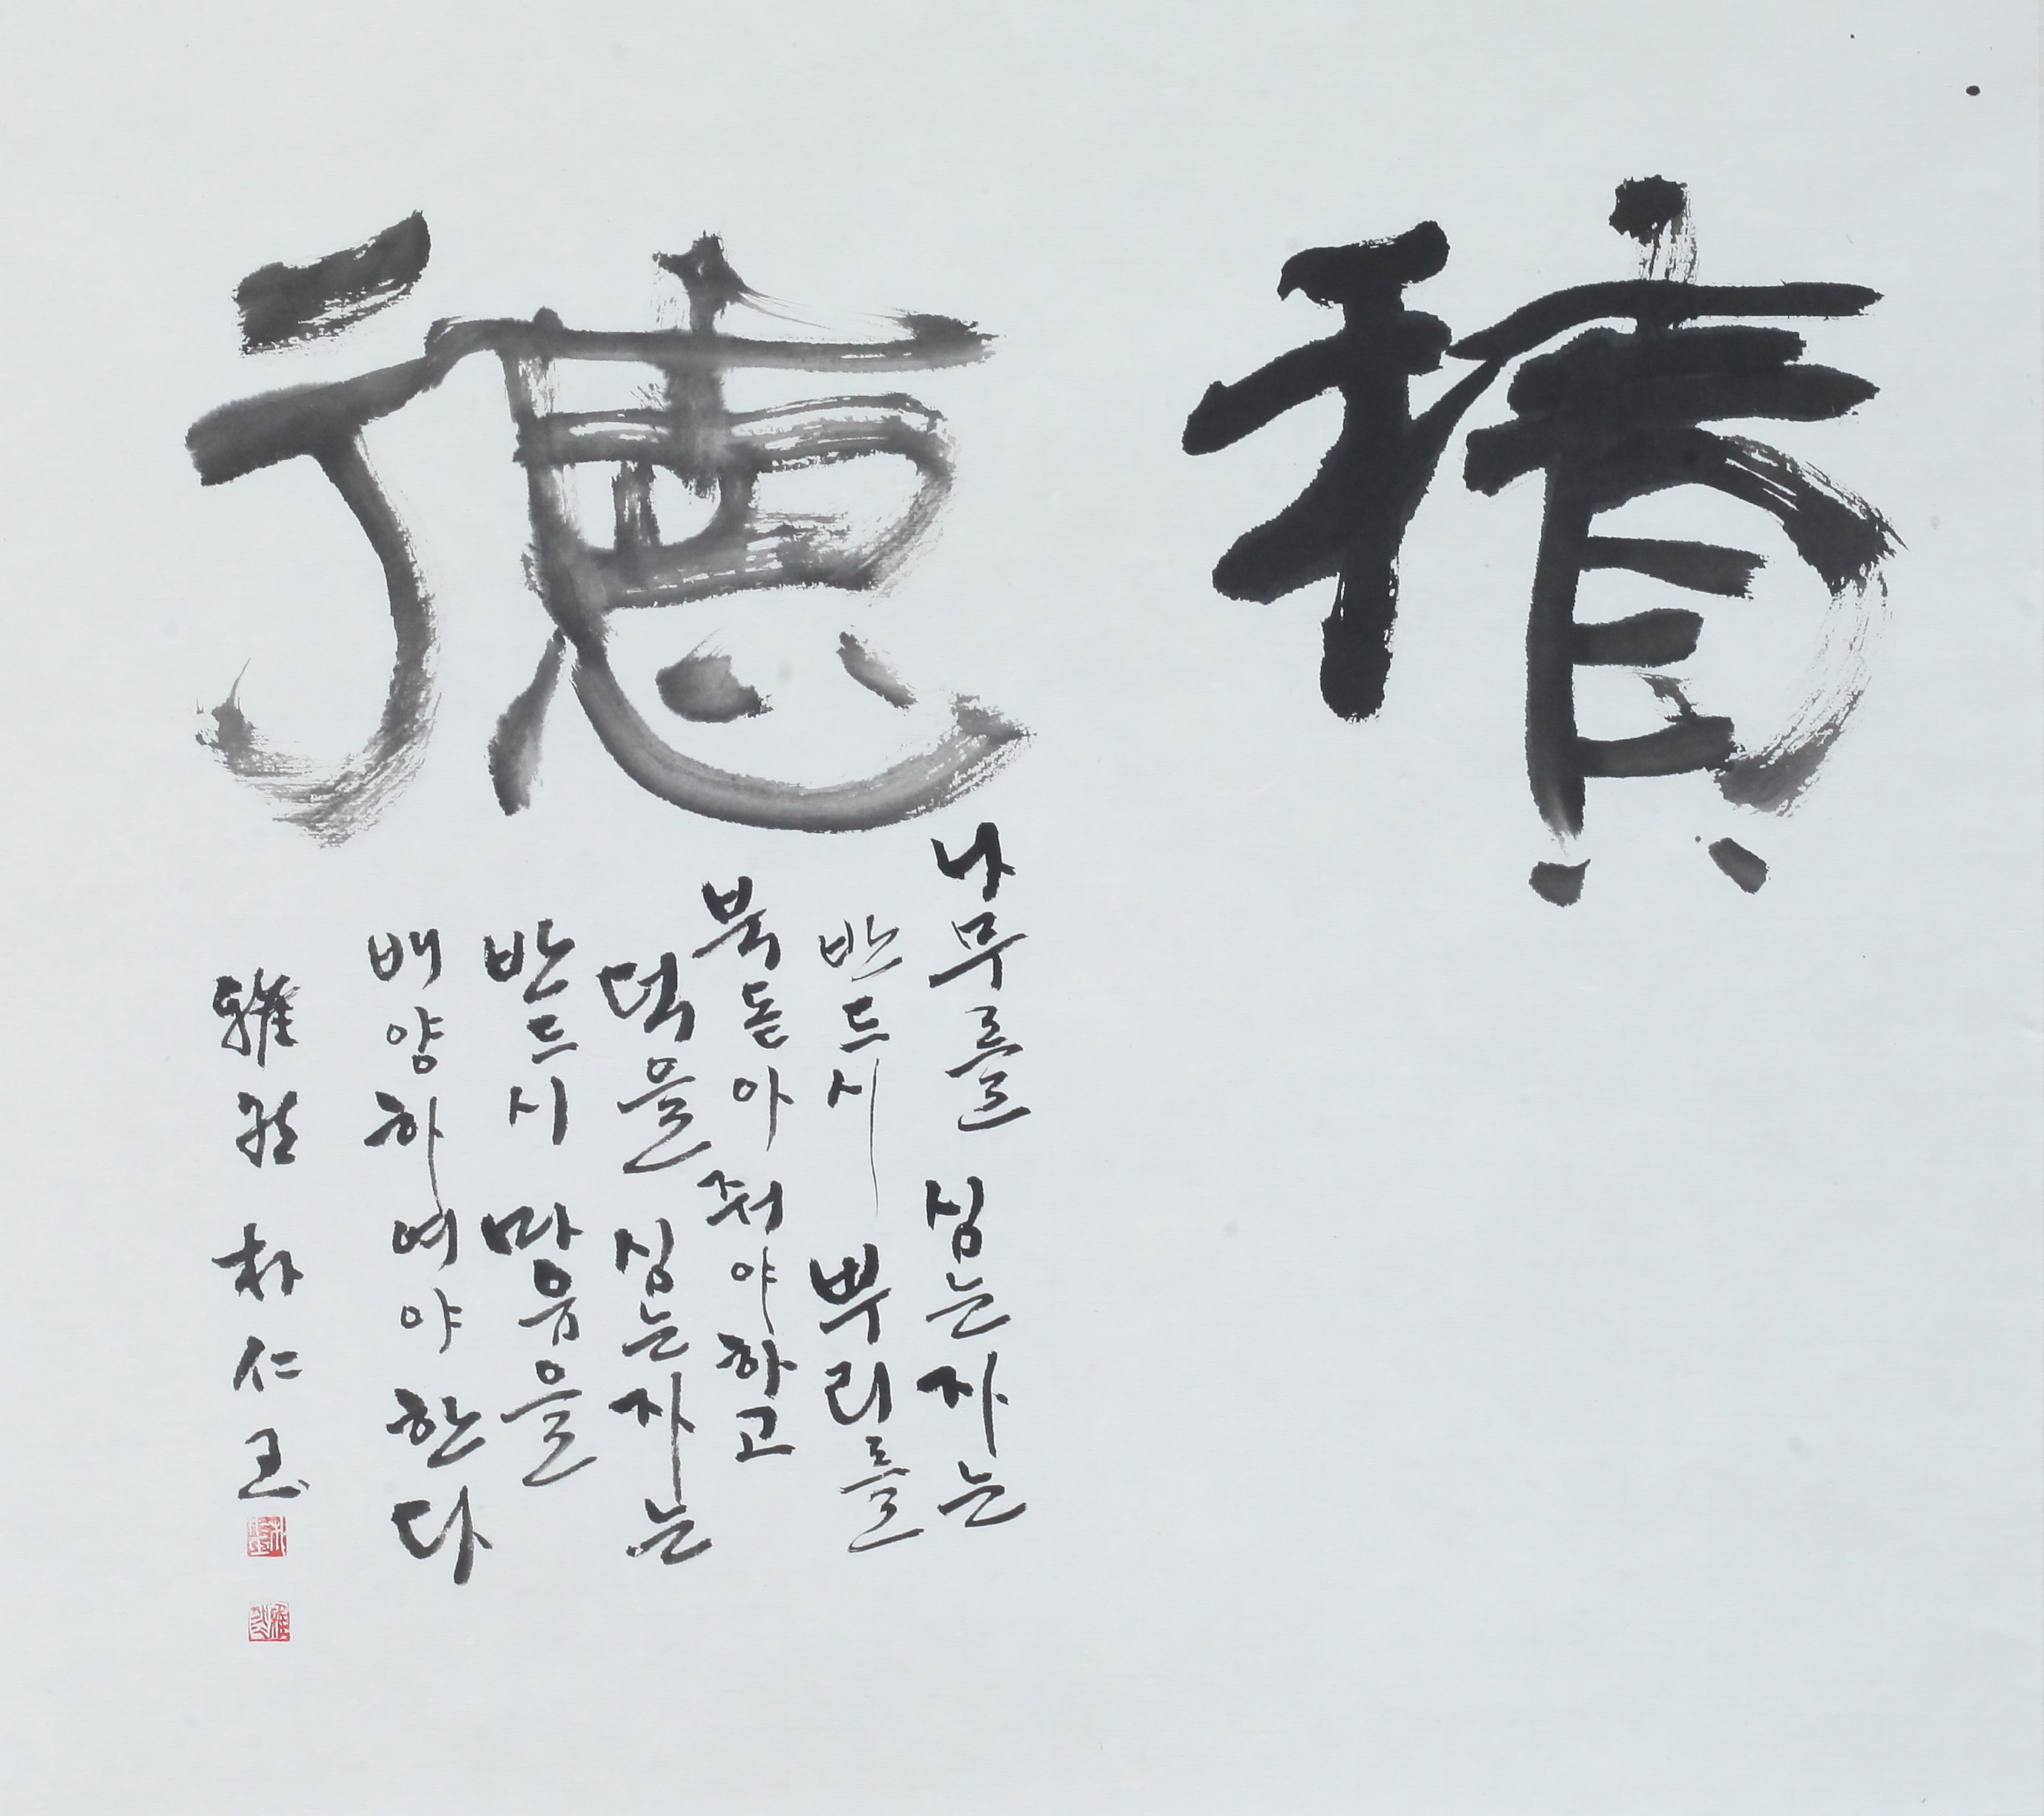 積德
나무를 심는자는
반드시 뿌리를
북돋아 줘야하고
덕을 심는자는
반드시 마음을
배양하여야 한다
雅 朴仁